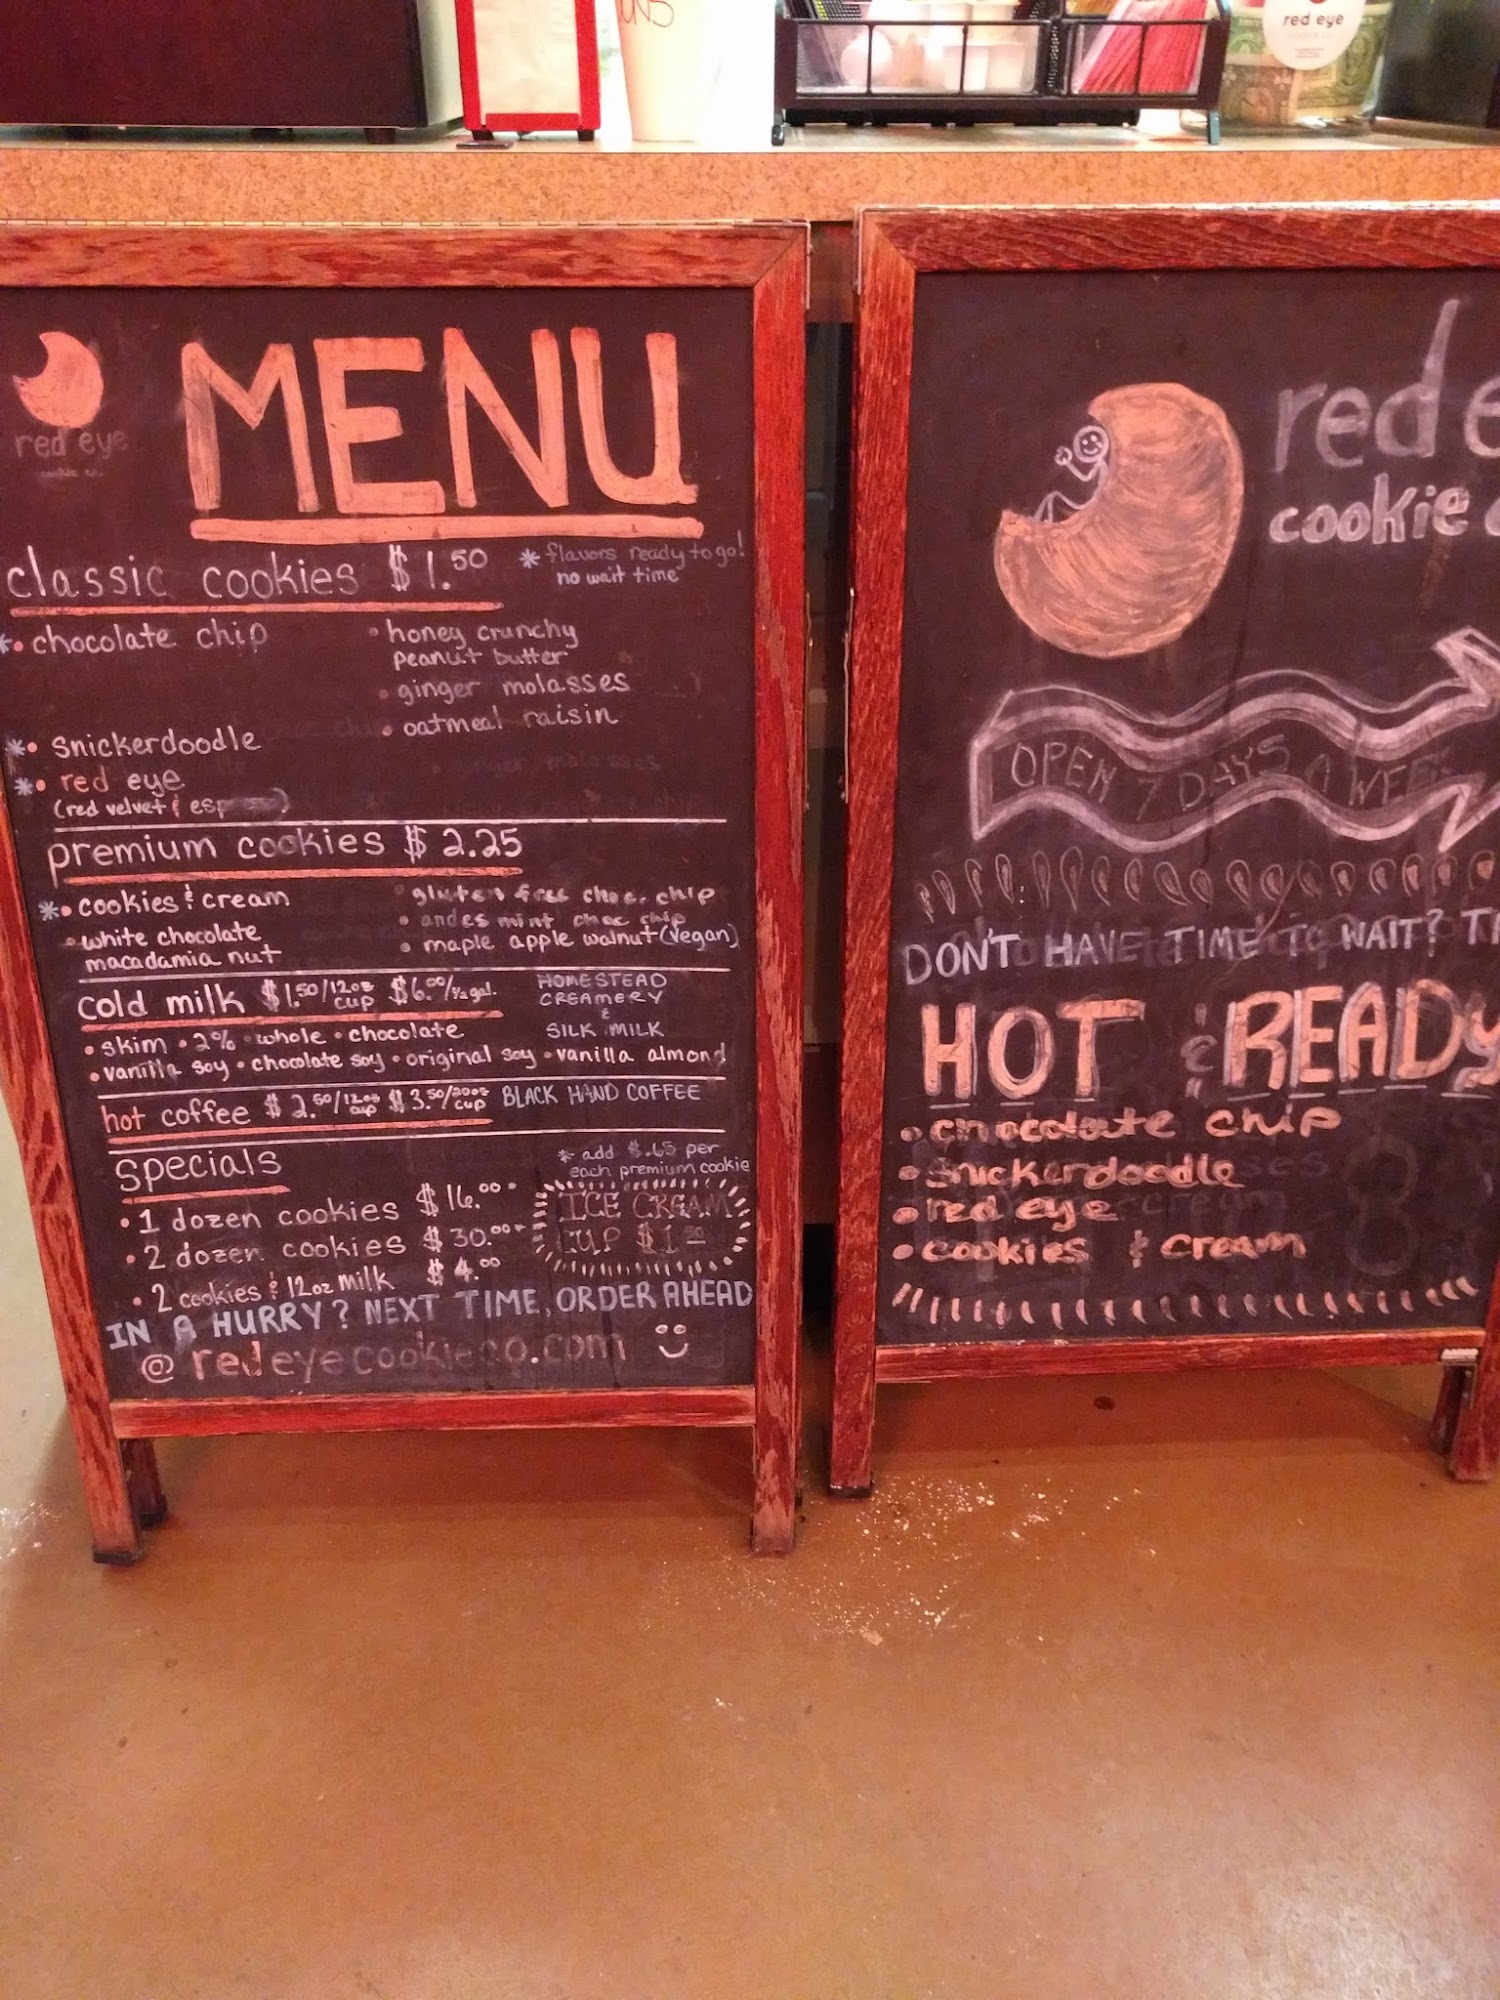 red eye
red eye
cookie co.
MENU
classic cookies $1.50
* flavors ready to go!
no wait time
*• chocolate chip
*• snickerdoodle
*• red eye
(red velvet &
• honey crunchy
peanut butter
• ginger molasses
• oatmeal raisin
premium cookies $2.25
*• cookies & cream
• white chocolate
macadamia nut
• gluten free choc. chip
• andes mint choc chip
• maple apple walnut (vegan)
cold milk $1.50/12oz cup $6.00/½ gal.
HOMESTEAD
CREAMERY
&
SILK MILK
• skim • 2% • whole • chocolate
• vanilla soy • chocolate soy • original soy • vanilla almond
hot coffee $2.50/12oz cup $3.50/20oz cup BLACK HAND COFFEE
specials
* add $.65 per
each premium cookie
• 1 dozen cookies $16.00*
• 2 dozen cookies $30.00*
• 2 cookies & 12oz milk $4.00
ICE CREAM
CUP $1.50
IN A HURRY? NEXT TIME, ORDER AHEAD
@ redeyecookieco.com
red e
cookie c
OPEN 7 DAYS A WEE
DON'T HAVE TIME TO WAIT? T
HOT & READY
• chocolate chip
• snickerdoodle
• red eye
• cookies & cream